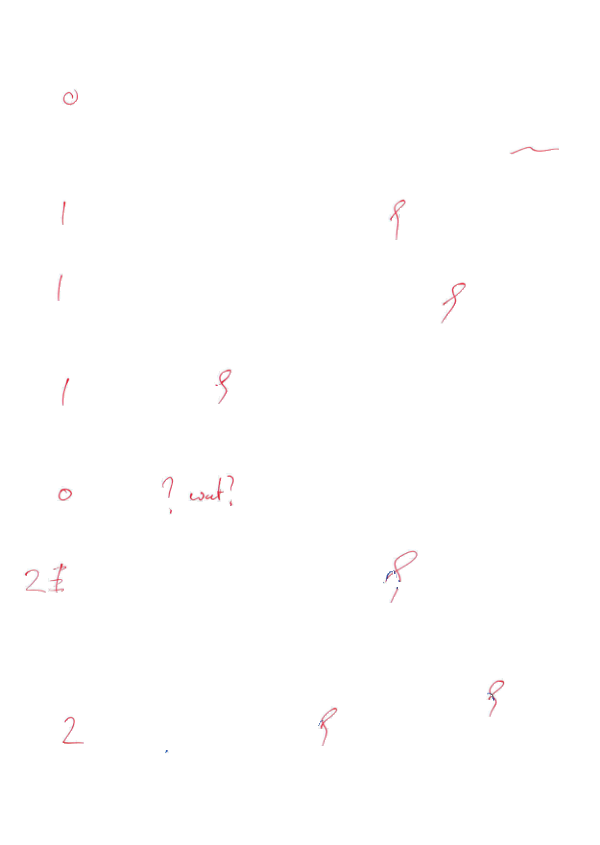 0
1
1
1
0 ? wat?
2
2